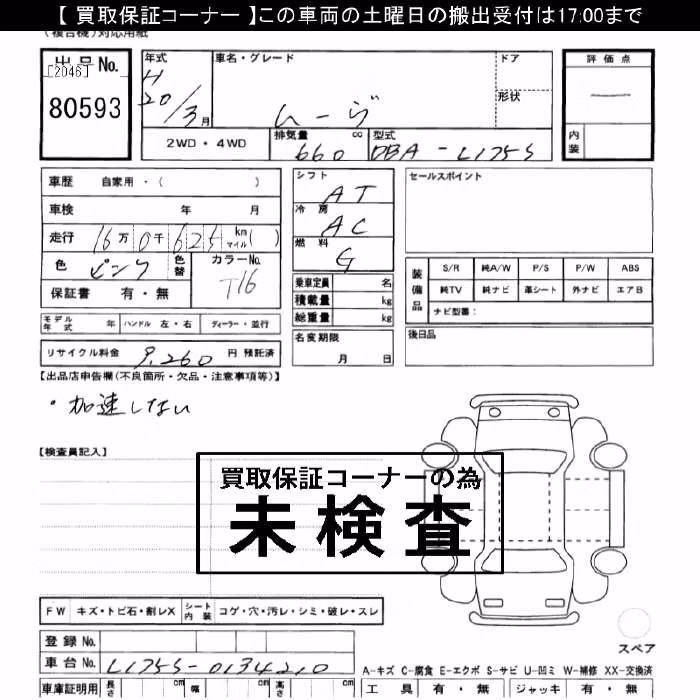 【 買取保証コーナー 】この車両の土曜日の搬出受付は17:00まで
(複合機)対応用紙
出品No.
[2046]
80593
年式
H
20/3月
車名・グレード
ムーヴ
ドア
形状
評価点
内装
2WD・4WD
排気量 cc
660
型式
DBA-L175S
車歴 自家用・( )
車検 年 月
走行 16万0千625 km マイル( )
色 ピンク 色替 カラーNo. T16
保証書 有・無
シフト AT
冷房 AC
燃料 G
乗車定員 名
積載量 kg
総重量 kg
セールスポイント
装備品 S/R 純A/W P/S P/W ABS
純TV 純ナビ 革シート 外ナビ エアB
ナビ型番:
モデル年式 年 ハンドル 左・右 ディーラー・並行
名変期限 月 日
後日品
リサイクル料金 9,260 円 預託済
【出品店申告欄(不良箇所・欠品・注意事項等)】
・加速しない
【検査員記入】
買取保証コーナーの為
未検査
FW キズ・トビ石・割レX シート内装 コゲ・穴・汚レ・シミ・破レ・スレ
登録No.
車台No. L175S-0134210
スペア
A-キズ C-腐食 E-エクボ S-サビ U-凹ミ W-補修 XX-交換済
車庫証明用 長さ cm 幅 cm 高さ cm
工具 有・無 ジャッキ 有・無